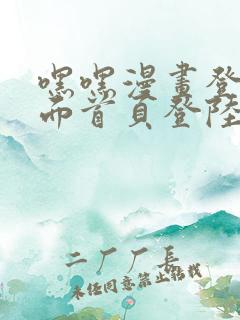 嘿嘿漫畫登
面首頁登陸
二厂厂長
未经同意禁止搭載